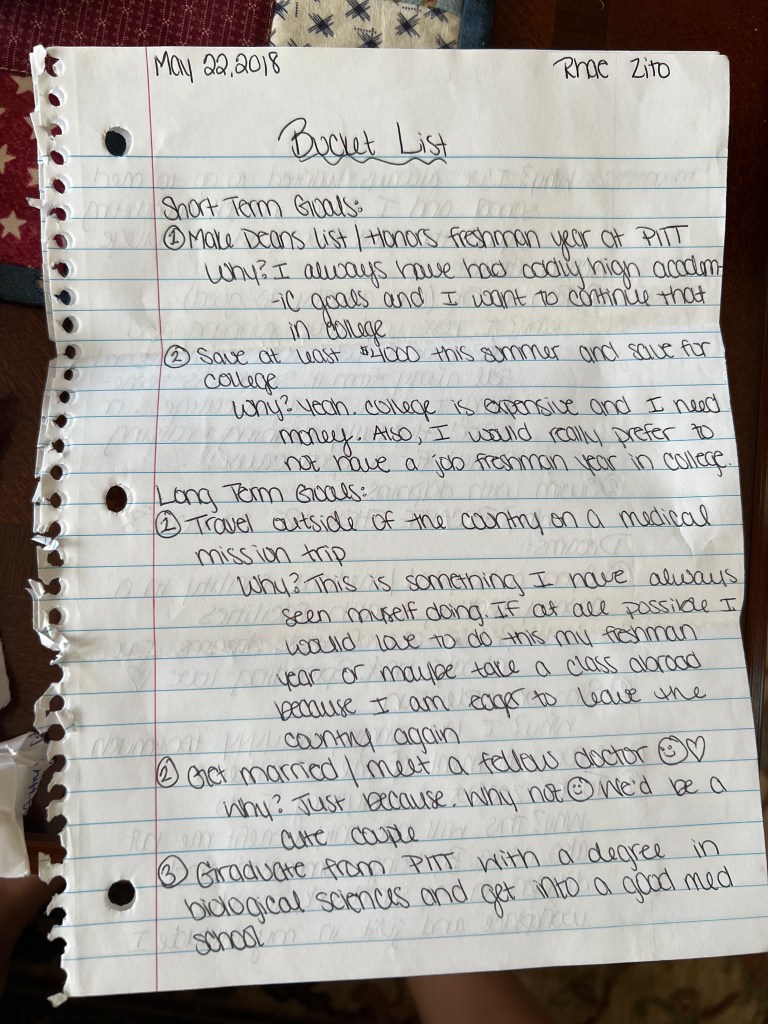 May 22, 2018 Rhae Zito
Bucket List
Short Term Goals:
① Make Deans list / Honors freshman year at PITT
Why? I always have had oddly high academ-
-ic goals and I want to continue that
in college
② Save at least $4000 this summer and save for
college
Why? Yeah. college is expensive and I need
money. Also, I would really prefer to
not have a job freshman year in college.
Long Term Goals:
① Travel outside of the country on a medical
mission trip
Why? This is something I have always
seen myself doing. If at all possible I
would love to do this my feshman
year or maybe take a class abroad
because I am eager to leave the
country again
② Get married / meet a fellow doctor ☺♡
Why? Just because. Why not ☺ We'd be a
cute couple
③ Graduate from PITT with a degree in
biological sciences and get into a good med
school